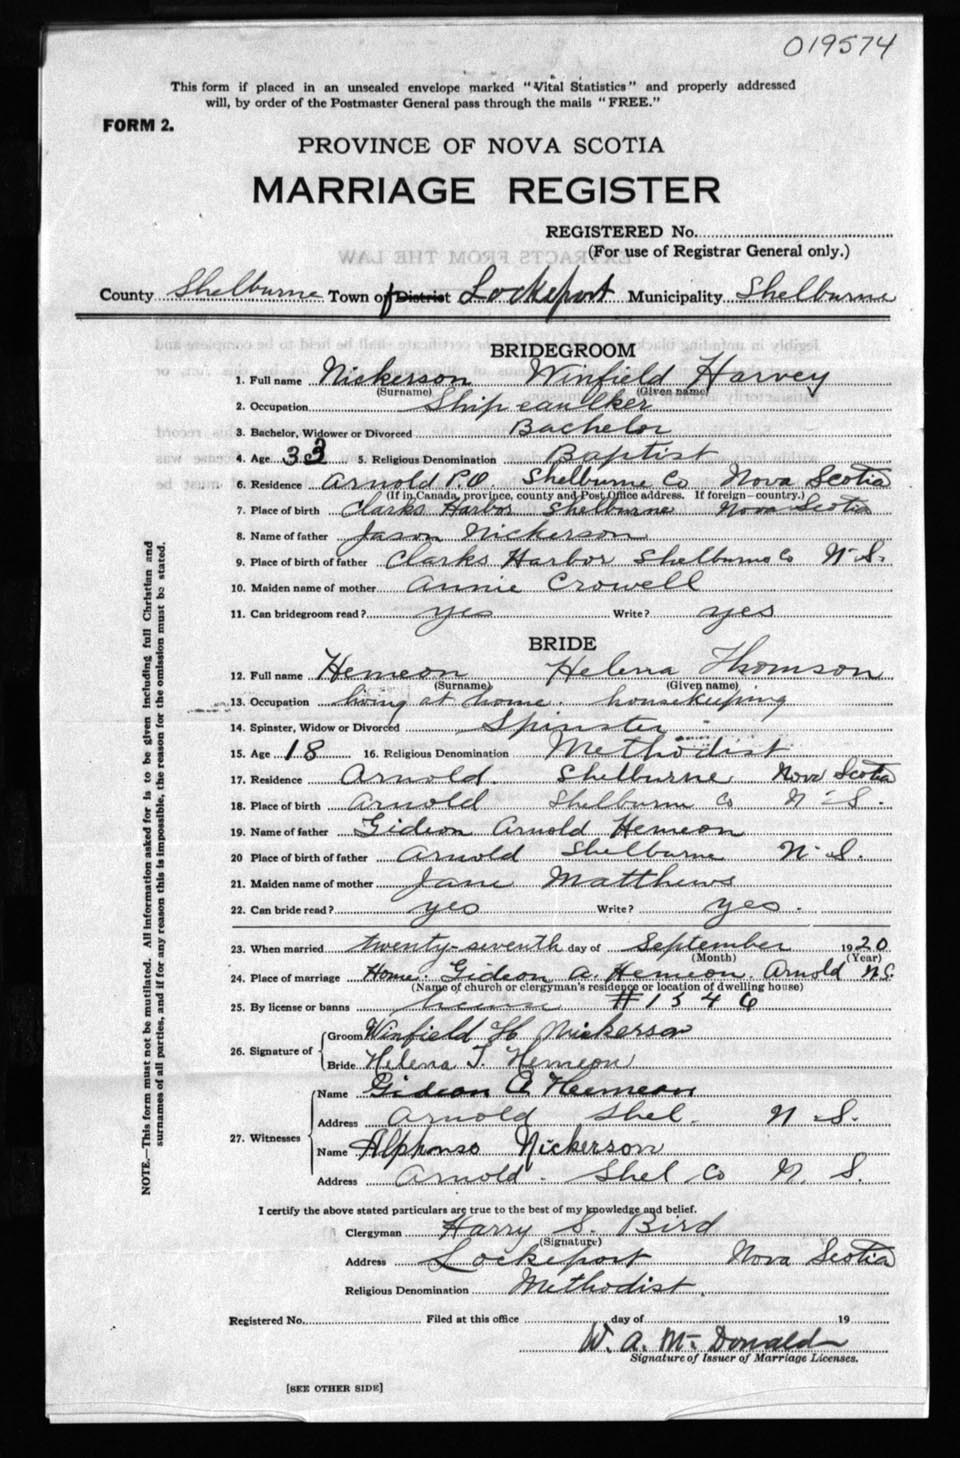 019574
This form if placed in an unsealed envelope marked "Vital Statistics" and properly addressed
will, by order of the Postmaster General pass through the mails "FREE."
FORM 2.
PROVINCE OF NOVA SCOTIA
MARRIAGE REGISTER
REGISTERED No.
(For use of Registrar General only.)
County Shelburne Town of District Lockeport Municipality Shelburne
BRIDEGROOM
1. Full name Nickerson Winfield Harvey
(Surname) (Given name)
2. Occupation Ship caulker
3. Bachelor, Widower or Divorced Bachelor
4. Age 33 5. Religious Denomination Baptist
6. Residence Arnold P.O. Shelburne Co Nova Scotia
(If in Canada, province, county and Post Office address. If foreign—country.)
7. Place of birth Clarks Harbor Shelburne Nova Scotia
8. Name of father Jason Nickerson
9. Place of birth of father Clarks Harbor Shelburne Co N. S.
10. Maiden name of mother Annie Crowell
11. Can bridegroom read? yes Write? yes
BRIDE
12. Full name Hemeon Helena Thomson
(Surname) (Given name)
13. Occupation living at home. housekeeping
14. Spinster, Widow or Divorced Spinster
15. Age 18 16. Religious Denomination Methodist
17. Residence Arnold. Shelburne Nova Scotia
18. Place of birth Arnold Shelburn Co N. S.
19. Name of father Gideon Arnold Hemeon
20 Place of birth of father Arnold Shelburne N. S.
21. Maiden name of mother Jane Matthews
22. Can bride read? yes Write? yes.
23. When married twenty-seventh day of September 1920
(Month) (Year)
24. Place of marriage Home. Gideon A. Hemeon. Arnold N.S.
(Name of church or clergyman's residence or location of dwelling house)
25. By license or banns license #1346
26. Signature of
Groom Winfield H Nickerson
Bride Helena T. Hemeon
27. Witnesses
Name Gideon A Hemeon
Address Arnold Shel. N. S.
Name Alphonso Nickerson
Address Arnold. Shel Co N. S.
I certify the above stated particulars are true to the best of my knowledge and belief.
Clergyman Harry S. Bird
(Signature)
Address Lockeport Nova Scotia
Religious Denomination Methodist.
Registered No. Filed at this office day of 19
W. A. McDonald
Signature of Issuer of Marriage Licenses.
[SEE OTHER SIDE]
NOTE.—This form must not be mutilated. All information asked for is to be given including full Christian and
surnames of all parties, and if for any reason this is impossible, the reason for the omission must be stated.